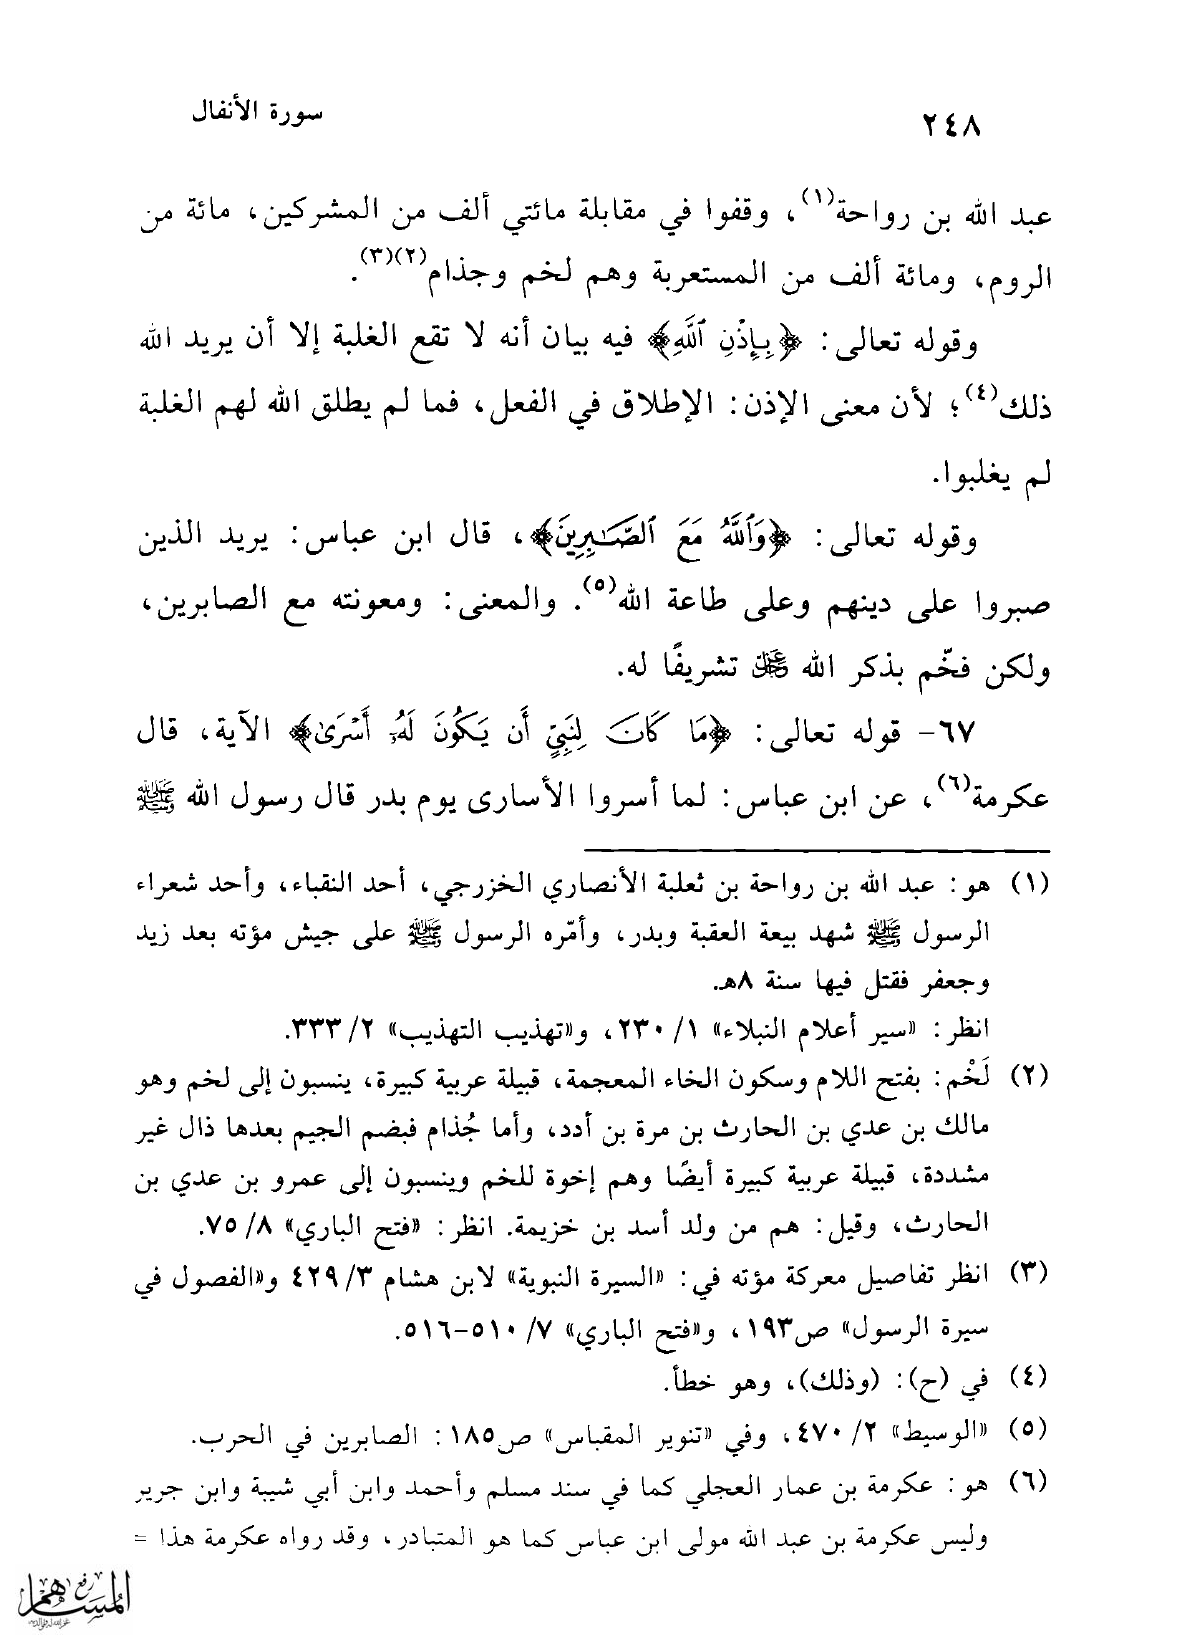 ٢٤٨
سورة الأنفال
عبد الله بن رواحة(١)، وقفوا في مقابلة مائتي ألف من المشركين، مائة من
الروم، ومائة ألف من المستعربة وهم لخم وجذام(٢)(٣).
وقوله تعالى: ﴿بِإِذْنِ ٱللَّهِ﴾ فيه بيان أنه لا تقع الغلبة إلا أن يريد الله
ذلك(٤)؛ لأن معنى الإذن: الإطلاق في الفعل، فما لم يطلق الله لهم الغلبة
لم يغلبوا.
وقوله تعالى: ﴿وَٱللَّهُ مَعَ ٱلصَّـٰبِرِينَ﴾، قال ابن عباس: يريد الذين
صبروا على دينهم وعلى طاعة الله(٥). والمعنى: ومعونته مع الصابرين،
ولكن فخّم بذكر الله عز وجل تشريفًا له.
٦٧- قوله تعالى: ﴿مَا كَانَ لِنَبِيٍّ أَن يَكُونَ لَهُۥ أَسْرَىٰ﴾ الآية، قال
عكرمة(٦)، عن ابن عباس: لما أسروا الأسارى يوم بدر قال رسول الله ﷺ
(١) هو: عبد الله بن رواحة بن ثعلبة الأنصاري الخزرجي، أحد النقباء، وأحد شعراء
الرسول ﷺ شهد بيعة العقبة وبدر، وأمّره الرسول ﷺ على جيش مؤته بعد زيد
وجعفر فقتل فيها سنة ٨هـ.
انظر: «سير أعلام النبلاء» ١/ ٢٣٠، و«تهذيب التهذيب» ٢/ ٣٣٣.
(٢) لَخْم: بفتح اللام وسكون الخاء المعجمة، قبيلة عربية كبيرة، ينسبون إلى لخم وهو
مالك بن عدي بن الحارث بن مرة بن أدد، وأما جُذام فبضم الجيم بعدها ذال غير
مشددة، قبيلة عربية كبيرة أيضًا وهم إخوة للخم وينسبون إلى عمرو بن عدي بن
الحارث، وقيل: هم من ولد أسد بن خزيمة. انظر: «فتح الباري» ٨/ ٧٥.
(٣) انظر تفاصيل معركة مؤته في: «السيرة النبوية» لابن هشام ٣/ ٤٢٩ و«الفصول في
سيرة الرسول» ص١٩٣، و«فتح الباري» ٧/ ٥١٠-٥١٦.
(٤) في (ح): (وذلك)، وهو خطأ.
(٥) «الوسيط» ٢/ ٤٧٠، وفي «تنوير المقباس» ص١٨٥: الصابرين في الحرب.
(٦) هو: عكرمة بن عمار العجلي كما في سند مسلم وأحمد وابن أبي شيبة وابن جرير
وليس عكرمة بن عبد الله مولى ابن عباس كما هو المتبادر، وقد رواه عكرمة هذا =
رفع
المساهم